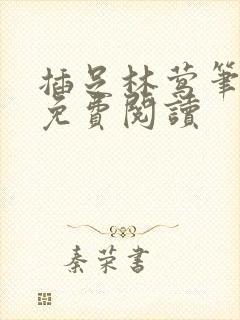 插足林莺筆
免費閱讀
秦荣書